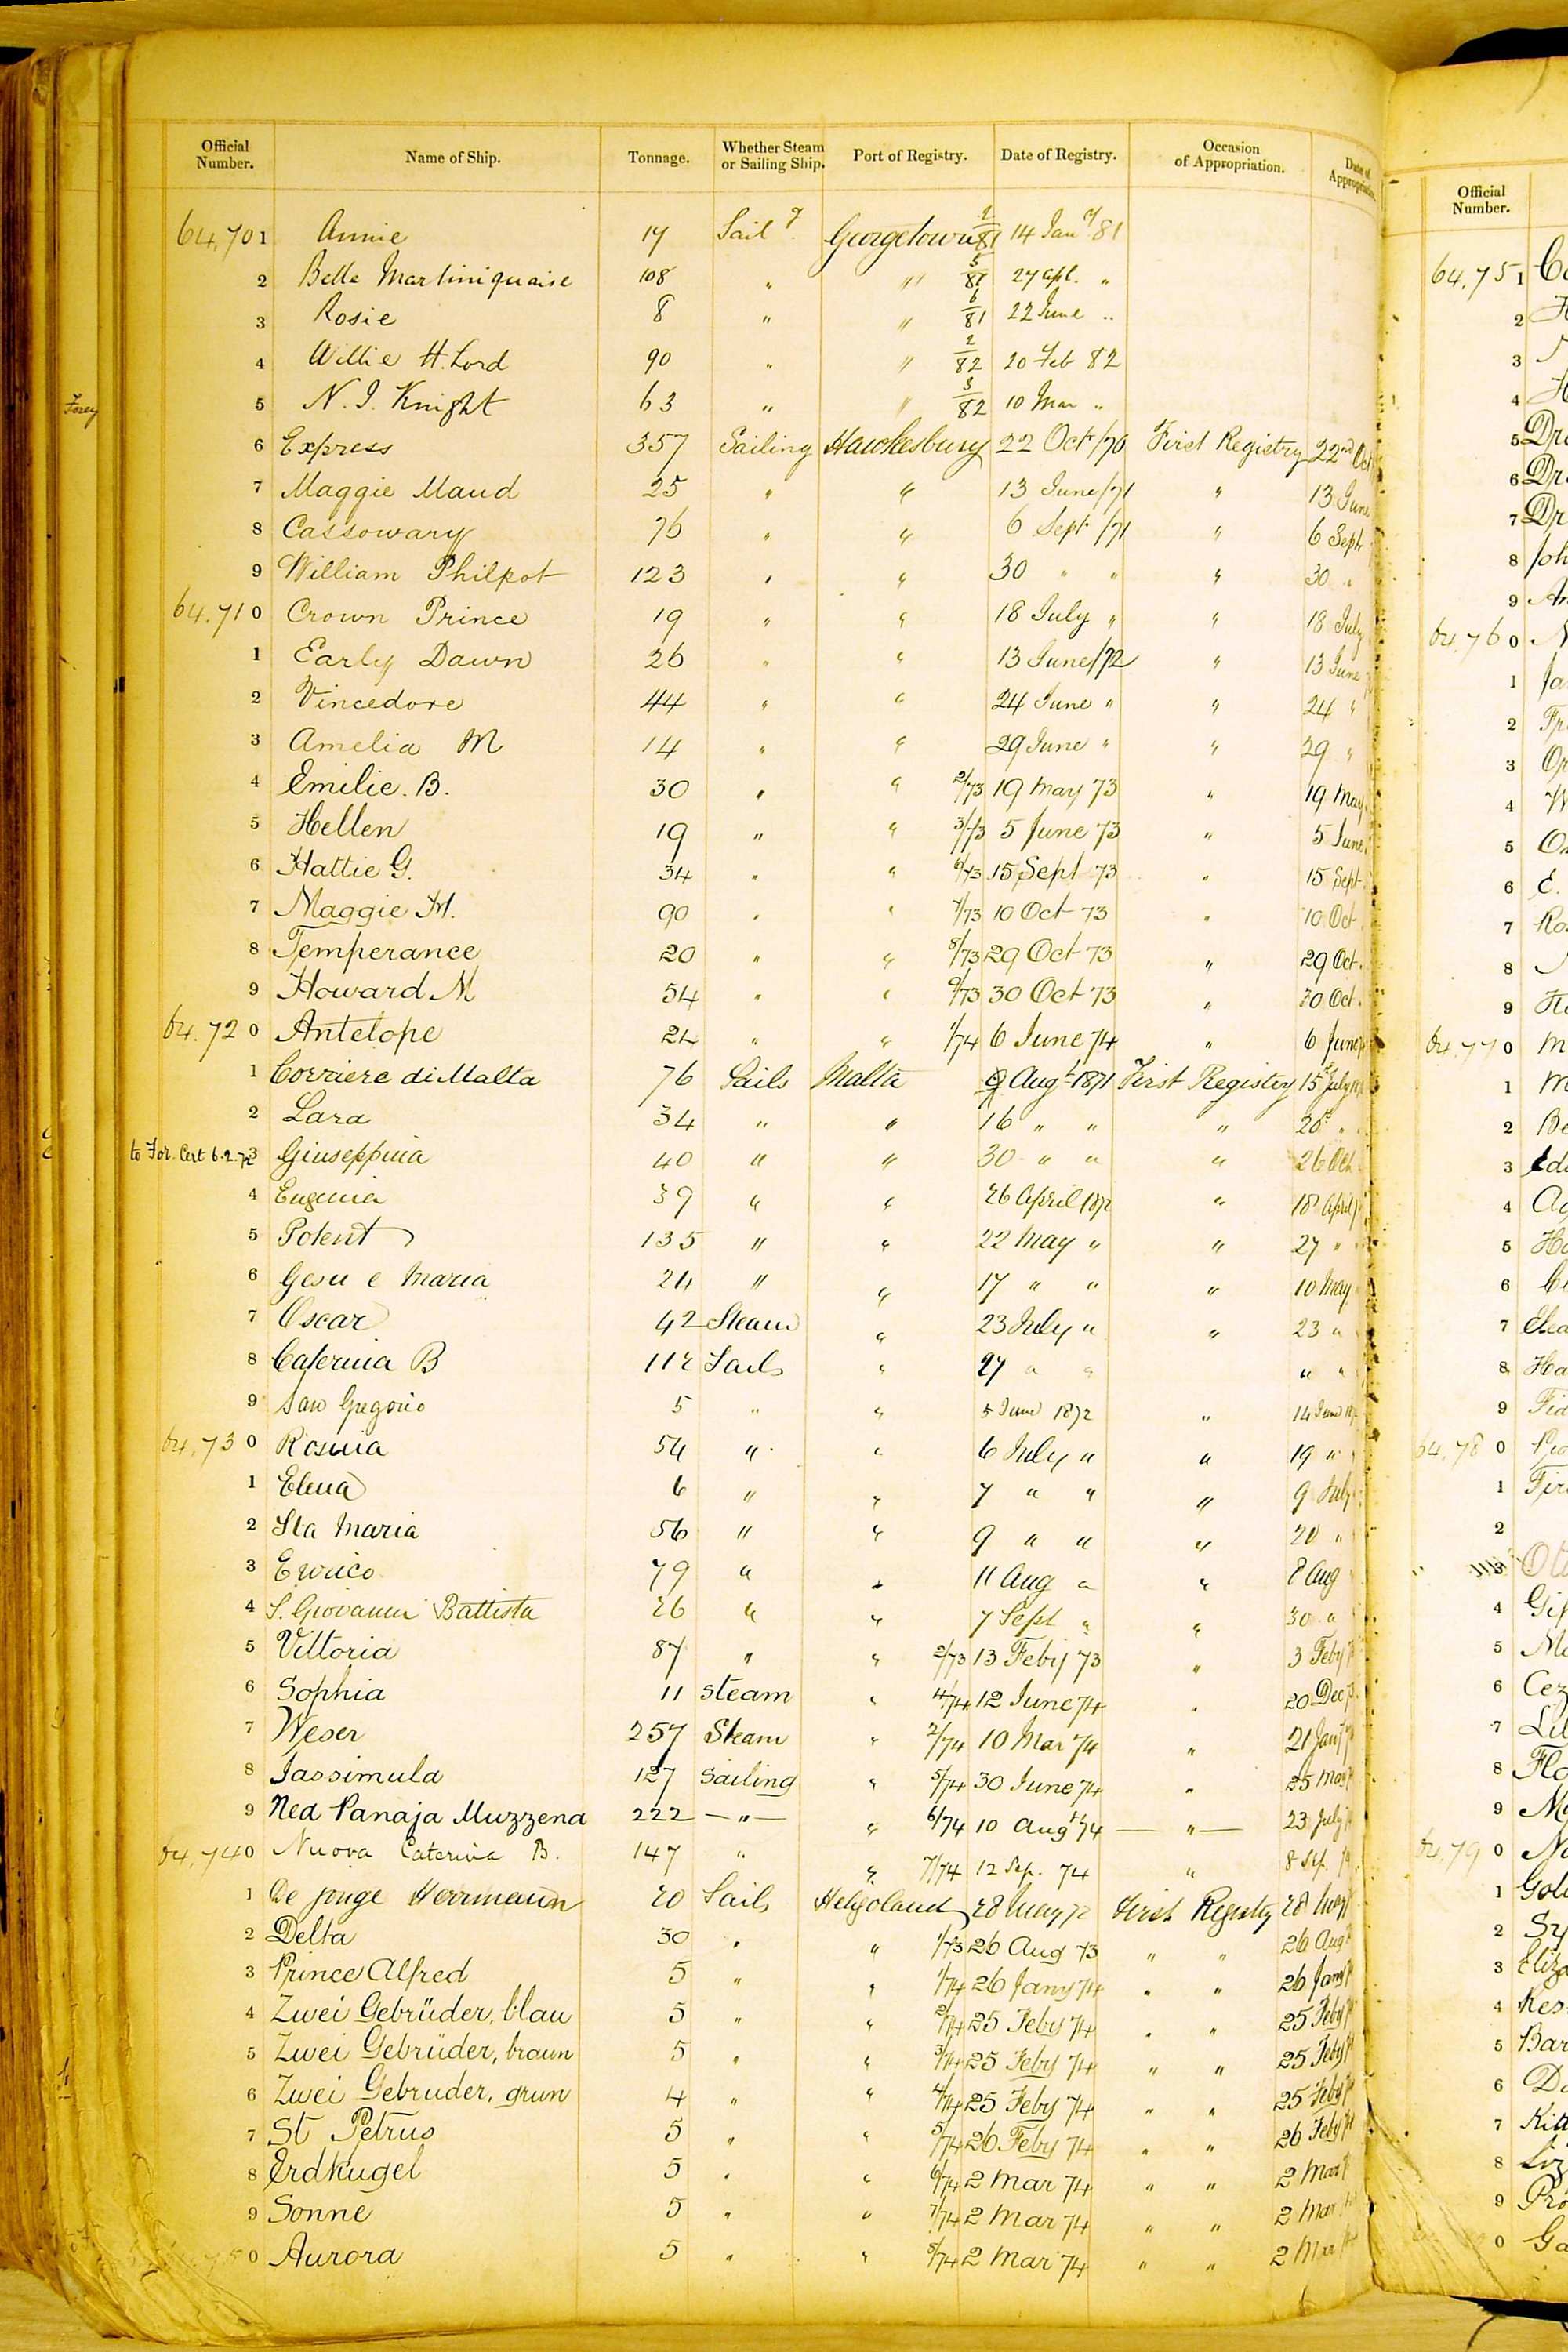 Official Number. Name of Ship. Tonnage. Whether Steam or Sailing Ship. Port of Registry. Date of Registry. Occasion of Appropriation. Date of Appropriation.
64,701 Annie 17 Sail g Georgetown 1/81 14 Jany 81
2 Belle Martiniquaise 108 " " 5/81 27 Apl. "
3 Rosie 8 " " 6/81 22 June "
4 Willie H. Lord 90 " " 2/82 20 Feb 82
5 N. J. Knight 63 " " 3/82 10 Mar "
6 Express 357 Sailing Hawkesbury 22 Oct /70 First Registry 22nd Oct
7 Maggie Maud 25 " " 13 June/71 " 13 June
8 Cassowary 76 " " 6 Sept /71 " 6 Sept
9 William Philpot 123 " " 30 " " " 30 "
64.710 Crown Prince 19 " " 18 July " " 18 July
1 Early Dawn 26 " " 13 June/72 " 13 June
2 Vincedore 44 " " 24 June " " 24 "
3 Amelia M 14 " " 29 June " " 29 "
4 Emilie. B. 30 " " 2/73 19 May 73 " 19 May
5 Hellen 19 " " 3/73 5 June 73 " 5 June
6 Hattie G. 34 " " 6/73 15 Sept 73 " 15 Sept
7 Maggie M. 90 " " 7/73 10 Oct 73 " 10 Oct
8 Temperance 20 " " 8/73 29 Oct 73 " 29 Oct.
9 Howard M 54 " " 9/73 30 Oct 73 " 30 Oct.
64.720 Antelope 24 " " 1/74 6 June 74 " 6 June
1 Corriere di Malta 76 Sails Malta 9 Augt 1871 First Registry 15 July
2 Lara 34 " " 16 " " " 20 "
to For. Cert 6.2.72 3 Giuseppina 40 " " 30 " " " 26 Oct
4 Eugenia 39 " " 26 April 1872 " 18 April
5 Potent 135 " " 22 May " " 27 "
6 Gesu e Maria 24 " " 17 " " " 10 May
7 Oscar 42 Steam " 23 July " " 23 "
8 Caterina B 112 Sails " 27 " " " "
9 San Gregorio 5 " " 5 June 1872 " 14 June
64.730 Rosina 54 " " 6 July " " 19 "
1 Elena 6 " " 7 " " " 9 July
2 Sta Maria 56 " " 9 " " " 20 "
3 Enrico 79 " " 11 Aug " " 8 Aug
4 S. Giovanni Battista 26 " " 7 Sept " " 30 "
5 Vittoria 87 " " 2/73 13 Feby 73 " 3 Feby
6 Sophia 11 steam " 4/74 12 June 74 " 20 Dec
7 Weser 257 Steam " 2/74 10 Mar 74 " 21 Jany
8 Iassimula 127 Sailing " 5/74 30 June 74 " 25 May
9 Nea Panaja Muzzena 222 — " — " 6/74 10 Augt 74 — " — 23 July
64,740 Nuova Caterina B. 147 " " 7/74 12 Sep. 74 " 8 Sep.
1 De Jonge Herrmann 20 Sails Helgoland 28 May 72 First Registry 28 May
2 Delta 30 " " 1/73 26 Aug 73 " " 26 Aug
3 Prince Alfred 5 " " 1/74 26 Jany 74 " " 26 Jany
4 Zwei Gebrüder, blau 5 " " 2/74 25 Feby 74 " " 25 Feby
5 Zwei Gebrüder, braun 5 " " 3/74 25 Feby 74 " " 25 Feby
6 Zwei Gebruder, grun 4 " " 4/74 25 Feby 74 " " 25 Feby
7 St Petrus 5 " " 5/74 26 Feby 74 " " 26 Feby
8 Erdkugel 5 " " 6/74 2 Mar 74 " " 2 Mar
9 Sonne 5 " " 7/74 2 Mar 74 " " 2 Mar
0 Aurora 5 " " 8/74 2 Mar 74 " " 2 Mar
Official Number.
64.751
2
3
4
5 Dr
6 Dr
7 Dr
8 Joh
9 An
64.760
1 Ja
2 Fr
3 Op
4 W
5
6 E.
7 Ro
8
9
64.770 M
1 M
2 Be
3 Ida
4
5 Ha
6
7
8 Ha
9
64.780
1 Fir
2
3
4
5 Me
6
7 Lil
8 Flo
9 My
64.790 No
1 Gol
2 Sy
3 Eliza
4 Kes
5 Bar
6 Da
7 Kitt
8
9 Pro
0 Ga